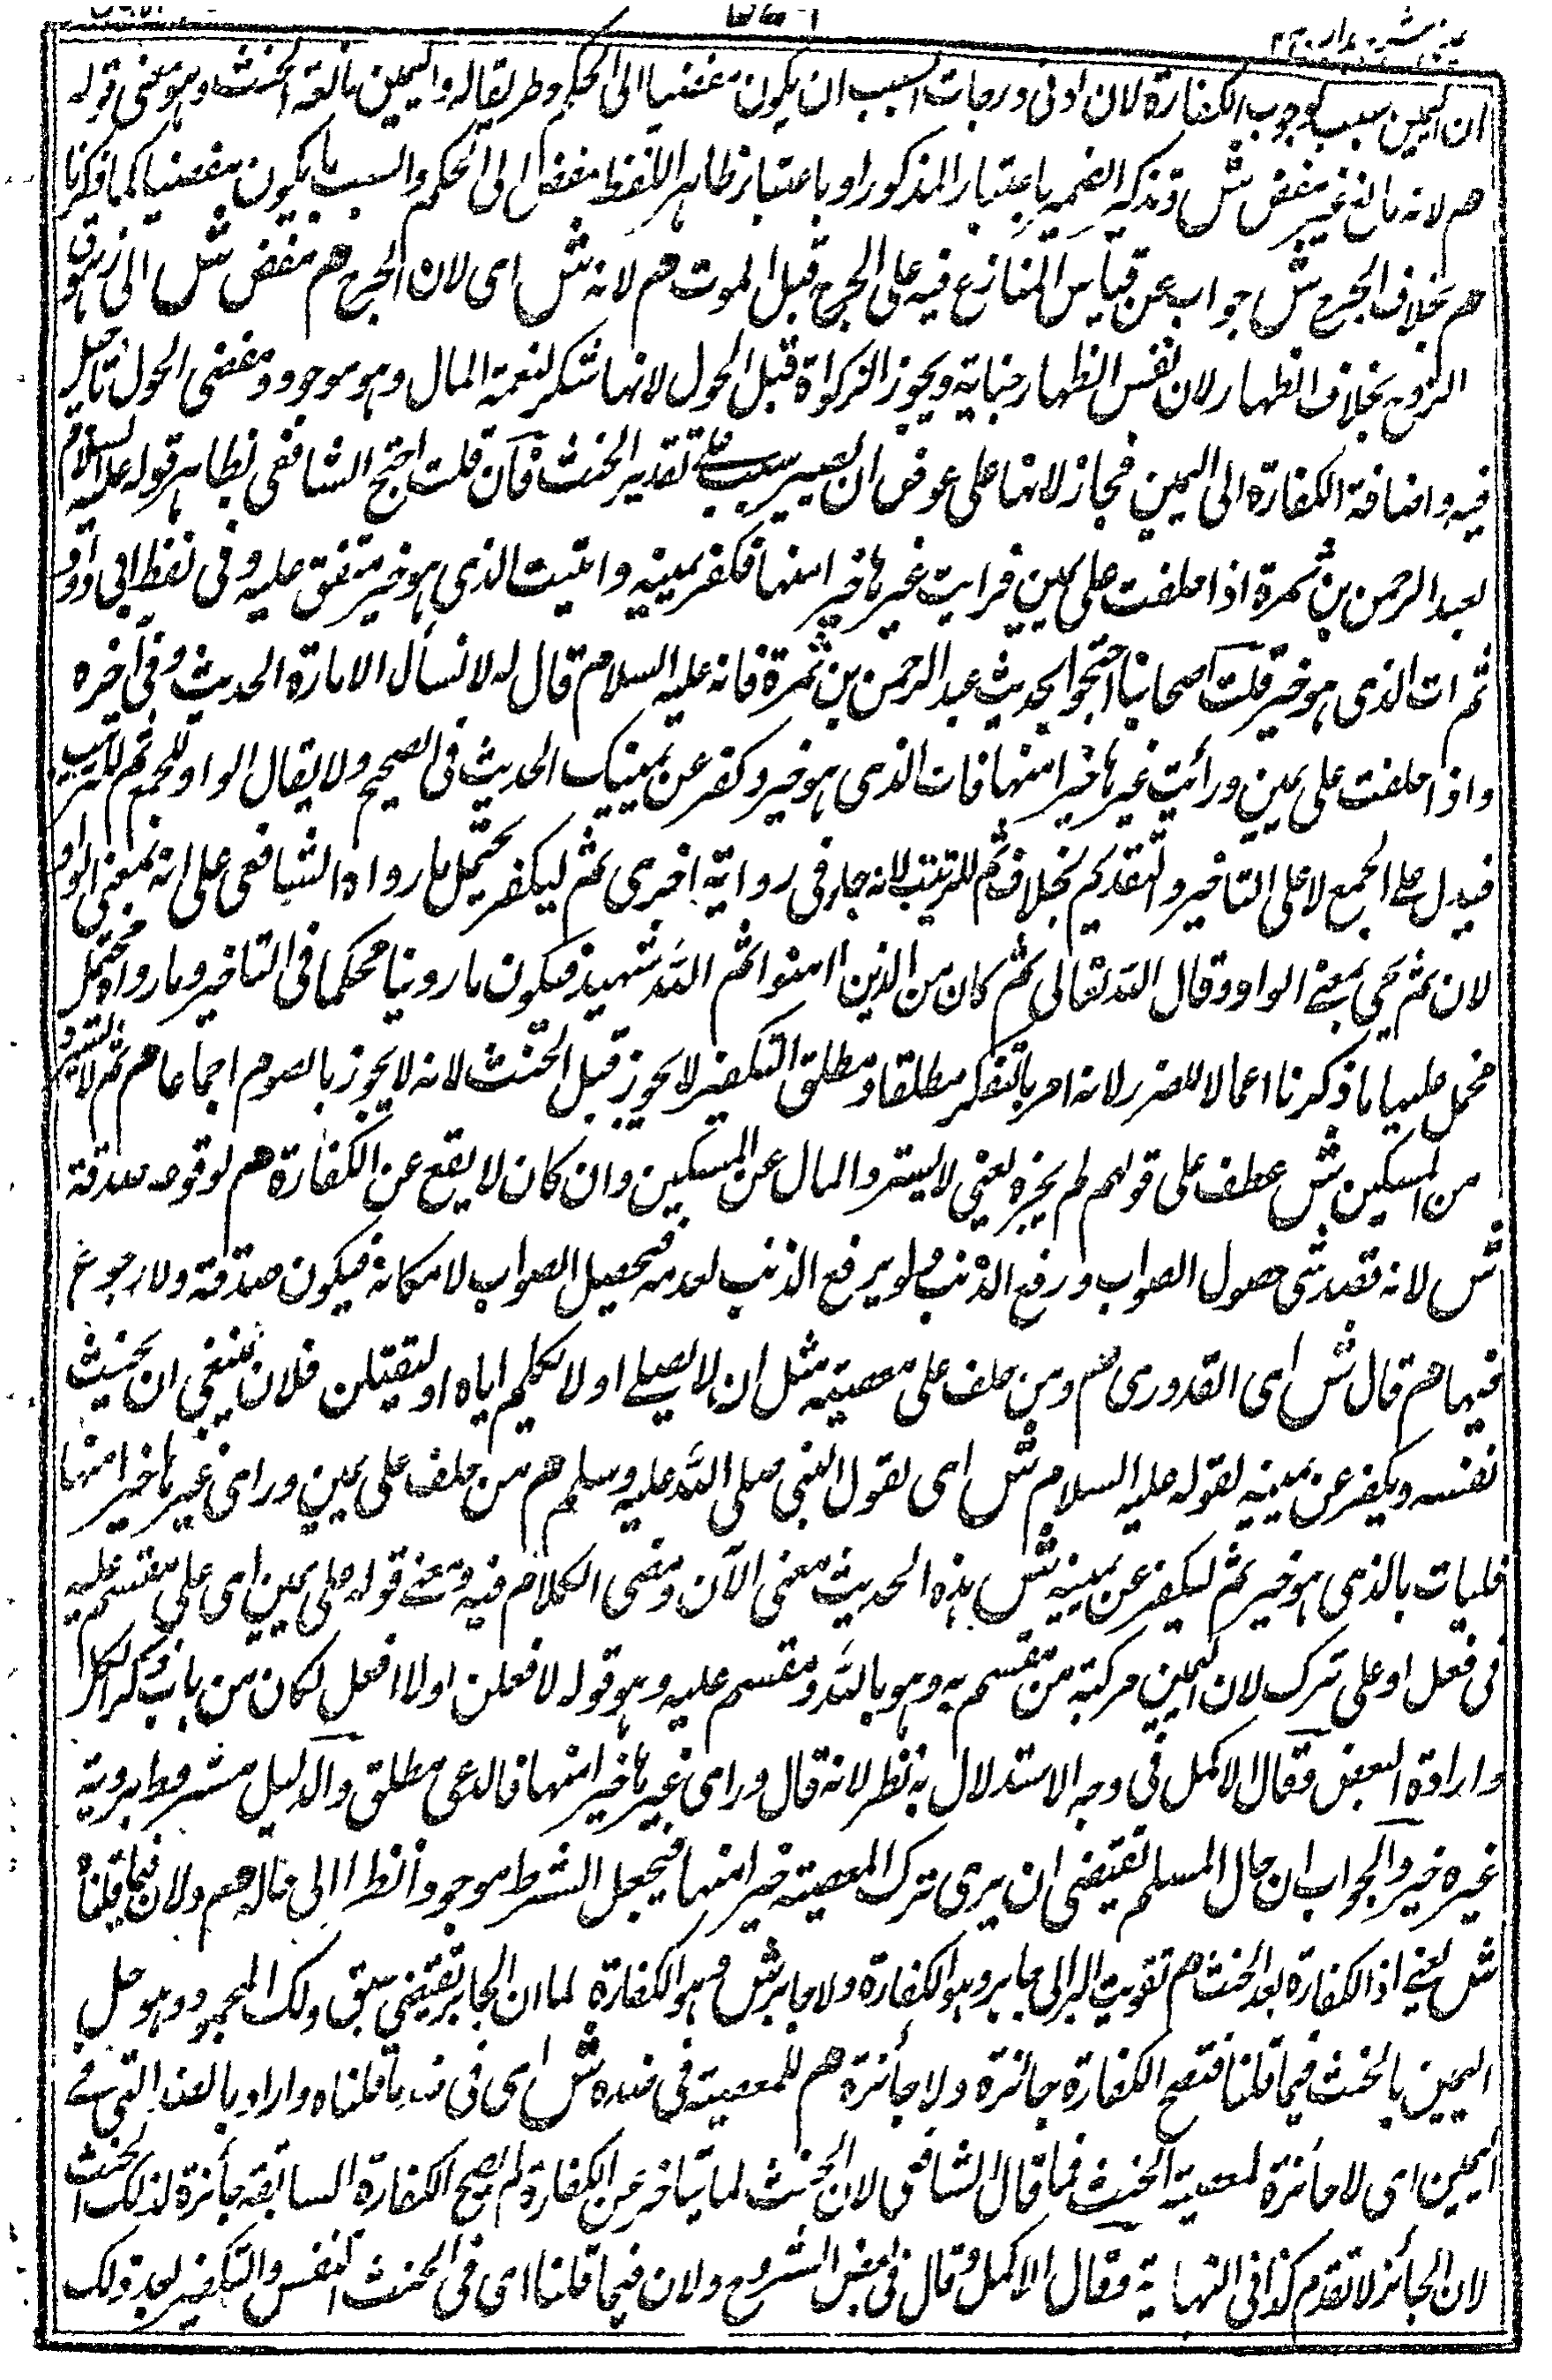 ان اليمين سبب لوجوب الكفارة لان ادنى درجات السبب ان يكون مفضيا الى الحكم وطريقا له واليمين مانعة الحنث وهو معنى قوله
هم لانه مانع غير مفض ش وتذكير الضمير باعتبار المذكور او باعتبار ظاهر اللفظ مفضل الى الحكم والسبب ما يكون مفضيا كما ذكرنا
هم بخلاف الجرح ش جواب عن قياس المنازع فيه على الجرح قبل الموت هم لانه ش اى لان الجرح هم مفض ش الى زهوق
الروح بخلاف الظهار لان نفس الظهار جناية ويجوز الزكواة قبل الحول لانها شكر لنعمة المال وهو موجود ومضى الحول تاجيل
فيه واضافة الكفارة الى اليمين فمجاز لانها على عوض ان يصير سببا على تقدير الحنث فان قلت احتج الشافعى بظاهر قوله عليه السلام
لعبد الرحمن بن ثمرة اذا حلفت على يمين فرايت غيرها خيرا منها فكفر يمينه وائتيت الذى هو خير متفق عليه وفى لفظ ابى داود
ثم ات الذى هو خير قلت اصحابنا احتجوا بحديث عبد الرحمن بن ثمرة فانه عليه السلام قال له لا تسأل الامارة الحديث وفى آخره
واذا حلفت على يمين ورأيت غيرها خيرا منها فات الذى هو خير وكفر عن يمينك الحديث فى الصحيح ولا يقال الواو للجمع ثم للترتيب
فيدل على الجمع لا على التاخير والتقديم بخلاف ثم للترتيب لانه جاء فى رواية اخرى ثم ليكفر يحتمل ما رواه الشافعى على انه بمعنى الواو
لان ثم يجى بمعنى الواو وقال الله تعالى ثم كان من الذين امنوا ثم الله شهيد فيكون ما روينا محكما فى التاخير وما رواه محتمل
فحمل عليها ما ذكرنا اعمالا للضرر لانه امر بالتفكير مطلقا ومطلق التكفير لا يجوز قبل الحنث لانه لا يجوز بالصوم اجماعا هم ثم لا يسترد
من المسكين ش عطف على قولهم لم يجزه يعنى لا يسترد المال عن المسكين وان كان لا يقع عن الكفارة هم لوقوعه صدقة
ش لانه قصد شى حصول الصواب ورفع الذنب ولو يرفع الذنب لعدمه فتحصيل الصواب لامكانه فيكون صدقة ولا رجوع
فيها هم قال ش اى القدورى هم ومن حلف على معصية مثل ان لا يصلى او لا يكلم اياه او ليقتلن فلان ينبغى ان يحنث
نفسه ويكفر عن يمينه لقوله عليه السلام ش اى لقول النبى صلى الله عليه وسلم هم من حلف على يمين وراى غيرها خيرا منها
فليات بالذى هو خير ثم ليكفر عن يمينه ش هذه الحديث مضى الآن ومضى الكلام فيه ومعنى قوله على يمين اى على مقسم عليه
فى فعل او على ترك لان اليمين مركبة من مقسم به وهو بالله ومقسم عليه وهو قوله لافعلن او لا افعل لكان من باب ذكر الكل
وارادة البعض وقال الاكمل فى وجه الاستدلال به نظر لانه قال وراى غيرها خيرا منها فالدعى مطلق والدليل مشروط برويته
غيره خير والجواب ان حال المسلم تقتضى ان يرى ترك المعصية خيرا منها فيجعل الشرط موجودا نظرا الى حاله هم ولان فيما قلناه
ش يعنى اذ الكفارة بعد الحنث هم تفويت البر الى جابر وهو الكفارة ولا جابر ش وهو الكفارة لما ان الجابر تقتضى سبق ذلك المجبور وهو حل
اليمين بالحنث فيما قلنا فتصح الكفارة جائزة ولا جائزة هم للمعصية فى ضده ش اى فى ضد ما قلناه واراد بالضد التى فى
اليمين اى لا جائزة لمعصية الحنث فما قال الشافعى لان الحنث لما يتاخر عن الكفارة لم يصح الكفارة السابقة جائزة لذلك الحنث
لان الجائز لا تقدم كذا فى النهاية وقال الاكمل وقال فى بعض الشروح ولان فيما قلنا اى فى الحنث النفس والتكفير بعد ذلك